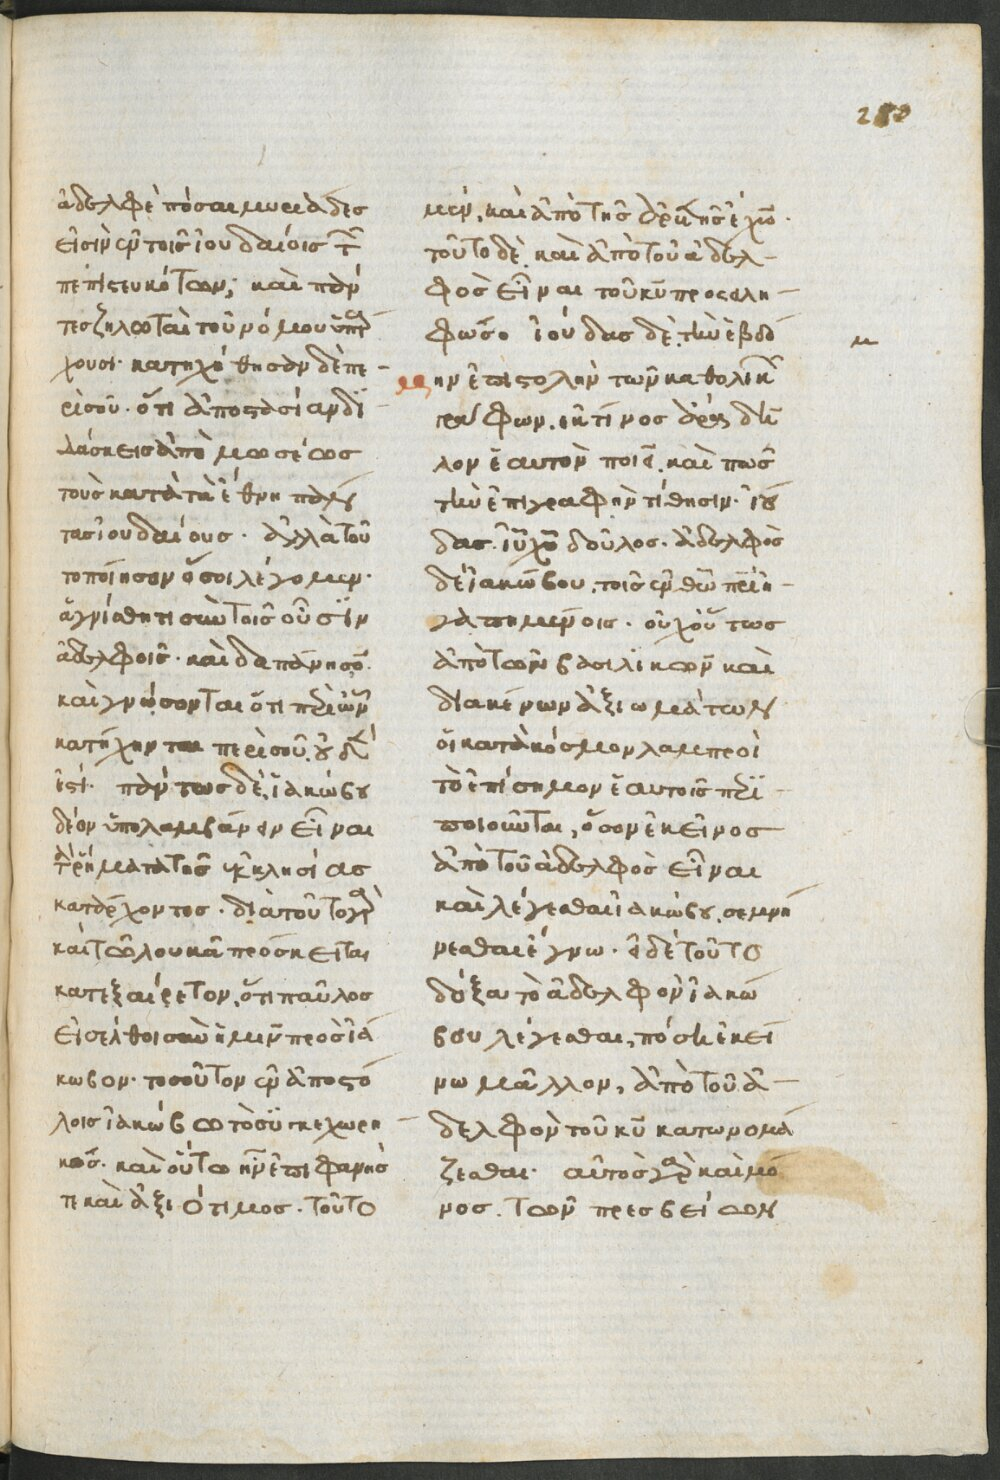 280
ἀδελφὲ πόσαι μυριάδες
εἰσὶν ἐν τοῖς ἰουδαίοις τῶν
πεπιστευκότων· καὶ πάν
τες ζηλωταὶ τοῦ νόμου ὑπάρ
χουσι· κατηχήθησαν δὲ πε
ρὶ σοῦ· ὅτι ἀποστασίαν δι
δάσκεις ἀπὸ μωσέως
τοὺς κατὰ τὰ ἔθνη πάν
τας ἰουδαίους· ἀλλὰ τοῦ
το ποίησον ὅ σοι λέγομεν·
ἁγνίσθητι σὺν τοῖς οὖσιν
ἀδελφοῖς· καὶ δαπάνησον·
καὶ γνώσονται ὅτι περὶ ὧν
κατήχηνται περὶ σοῦ, οὐδέν
ἐστι· πάντως δὲ ἰακώβου
δέον ὑπολαμβάνειν εἶναι
τὰ ῥήματα τῆς ἐκκλησίας
κατάρχοντος· διὰ τοῦτο γὰρ
καὶ τῷ λουκᾶ πρόσκειται
κατεξαίρετον, ὅτι παῦλος
εἰσέλθοι σὺν ἡμῖν πρὸς ἰά
κωβον· τοσοῦτον ἐν ἀποστό
λοις ἰακώβω τὸ συγκεχωρη
κὸς· καὶ οὕτω ἦν ἐπιφανής
τε καὶ ἀξιότιμος· τοῦτο
μὲν, καὶ ἀπὸ τῆς ἀρχῆς ἔχων·
τοῦτο δὲ, καὶ ἀπὸ τοῦ ἀδελ
φὸς εἶναι τοῦ κυ προσειλη
φώς· ἰούδας δὲ τὴν ἑβδό
μην ἐπιστολὴν τῶν καθολικῶν
γράφων, ἔκ τινος ἆρα δῆ
λον ἑαυτὸν ποιεῖ, καὶ πῶς
τὴν ἐπιγραφὴν τίθησιν· ἰού
δας ιυ χυ δοῦλος· ἀδελφὸς
δὲ ἰακώβου, τοῖς ἐν θω πρι ἠ
γαπημένοις· οὐχ οὕτως
ἀπὸ τῶν βασιλικῶν καὶ
διακένων ἀξιωμάτων
οἱ κατὰ κόσμον λαμπροὶ
τὸ ἐπίσημον ἑαυτοῖς περι
ποιοῦνται, ὅσον ἐκεῖνος
ἀπὸ τοῦ ἀδελφὸς εἶναι
καὶ λέγεσθαι ἰακώβου, σεμνύ
νεσθαι ἔγνω· εἰ δὲ τοῦτο
δόξα τὸ ἀδελφὸν ἰακώ
βου λέγεσθαι, πόσῳ ἐκεί
νω μᾶλλον, ἀπὸ τοῦ ἀ
δελφὸν τοῦ κυ κατωνομά
ζεσθαι· αὐτὸς γὰρ καὶ μό
νος τῶν πρεσβείων